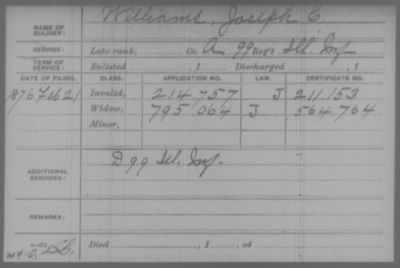 NAME OF SOLDIER: Williams, Joseph C.
SERVICE: Late rank, Co. A, 99 Reg't Ill. Inf.
TERM OF SERVICE: Enlisted , 1 Discharged , 1
DATE OF FILING. CLASS. APPLICATION NO. LAW. CERTIFICATE NO.
1876 Feb 21 Invalid, 214 757 J 211.153
Widow, 795 064 J 564 764
Minor,
ADDITIONAL SERVICES: D 99 Ill. Inf.
REMARKS:
Died , 1 , at